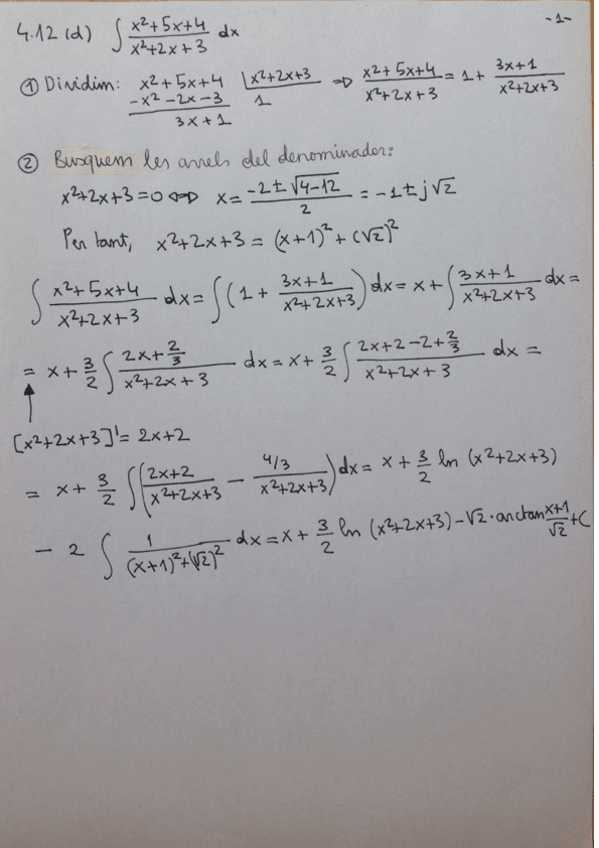 4.12 (d) ∫ (x²+5x+4)/(x²+2x+3) dx -1-
① Dividim: x²+5x+4 |x²+2x+3 ⇒ (x²+5x+4)/(x²+2x+3) = 1 + (3x+1)/(x²+2x+3)
-x²-2x-3 1
3x+1
② Busquem les arrels del denominador:
x²+2x+3=0 ⇔ x = (-2±√(4-12))/2 = -1±j√2
Per tant, x²+2x+3 = (x+1)²+(√2)²
∫ (x²+5x+4)/(x²+2x+3) dx = ∫ (1 + (3x+1)/(x²+2x+3)) dx = x + ∫ (3x+1)/(x²+2x+3) dx =
= x + 3/2 ∫ (2x+2/3)/(x²+2x+3) dx = x + 3/2 ∫ (2x+2-2+2/3)/(x²+2x+3) dx =
↑
[x²+2x+3]' = 2x+2
= x + 3/2 ∫ ((2x+2)/(x²+2x+3) - (4/3)/(x²+2x+3)) dx = x + 3/2 ln (x²+2x+3)
- 2 ∫ 1/((x+1)²+(√2)²) dx = x + 3/2 ln (x²+2x+3) - √2 · arctan (x+1)/√2 + C